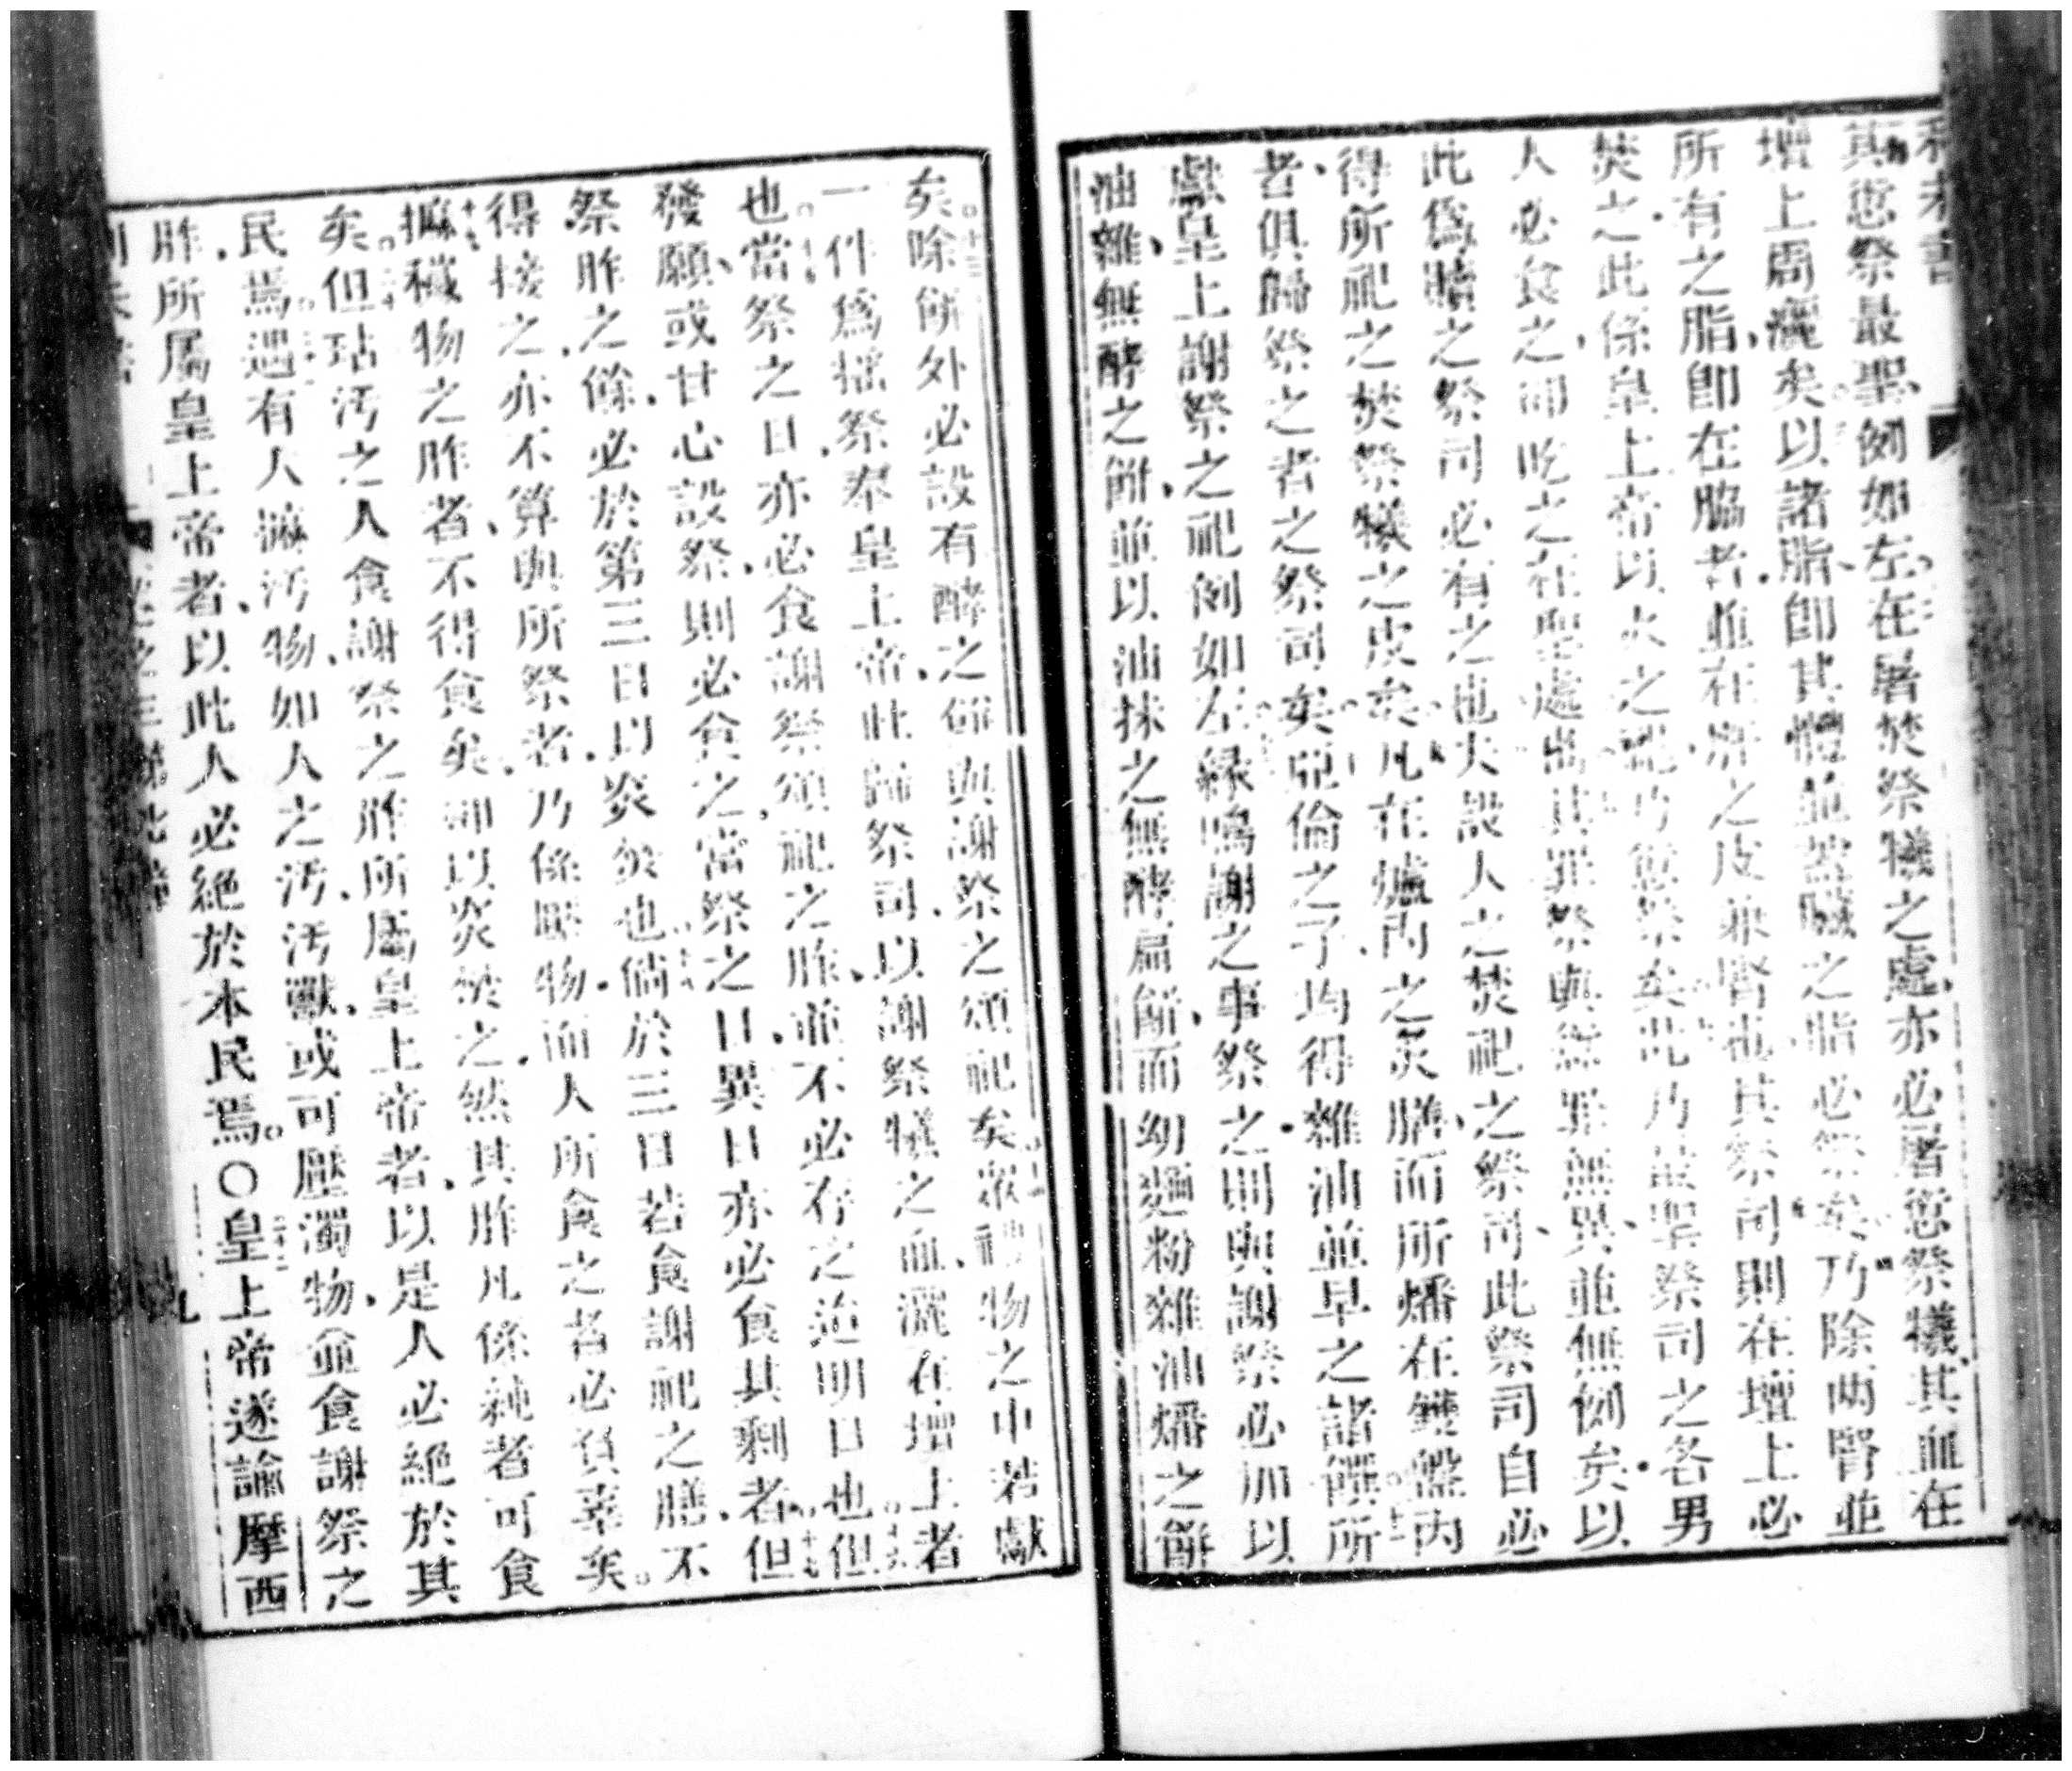 利未書
其愆祭最聖例如左在屠焚祭犧之處亦必屠愆祭犧其血在
壇上周灑矣以諸脂卽其體並蓋臟之脂必祭矣乃除兩腎並
所有之脂卽在脇者並在肝之皮兼腎也其祭司則在壇上必
焚之此係皇上帝以火之祀乃愆祭矣此乃最聖祭司之各男
人必食之司吃之在聖處出其罪祭與愆罪無異並無例矣以
此爲贖之祭司必有之也夫設人之焚祀之祭司此祭司自必
得所祀之焚祭犧之皮矣凡在爐內之炙膳而所燔在鑊盤內
者俱歸祭之者之祭司矣亞倫之子均得雜油並早之諸饌所
獻皇上謝祭之祀例如左緣鳴謝之事祭之則與謝祭必加以
油雜無酵之餅並以油抹之無酵扁餅而幼麵粉雜油燔之餅
矣除餅外必設有酵之餅與謝祭之頌祀矣衆禮物之中若獻
一件爲搖祭奉皇上帝此歸祭司以謝祭犧之血灑在壇上者
也當祭之日亦必食謝祭頌祀之胙並不必存之迨明日也但
發願或甘心設祭則必食之當祭之日異日亦必食其剩者但
祭胙之餘必於第三日以炎焚也倘於三日若食謝祀之膳不
得接之亦不算與所祭者乃係壓物而人所食之者必負辜矣
摭穢物之胙者不得食矣卽以炎焚之然其胙凡係純者可食
矣但玷污之人食謝祭之胙所屬皇上帝者以是人必絕於其
民焉遇有人摭污物如人之污污獸或可壓濁物並食謝祭之
胙所屬皇上帝者以此人必絕於本民焉○皇上帝遂諭摩西